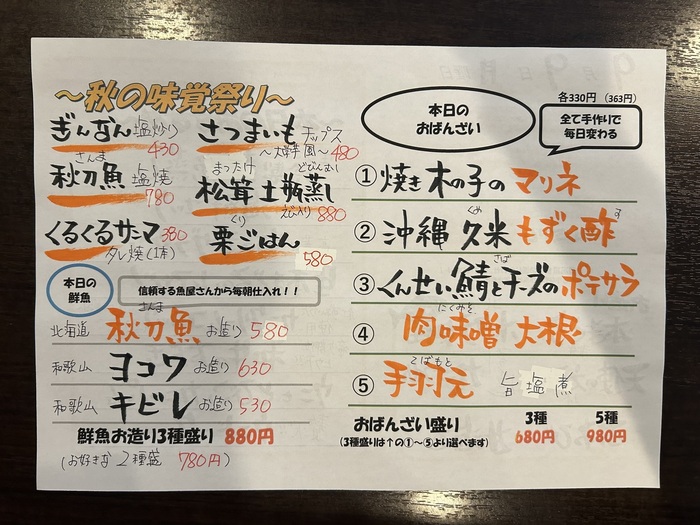 ～秋の味覚祭り～
ぎんなん 塩炒り
430
さつまいもチップス
～大学芋風～ 480
さんま
秋刀魚 塩焼
780
まったけ どびんむし
松茸土瓶蒸し
えび入り 880
くるくるサンマ 380
タレ焼(1本)
くり
栗ごはん
580
本日の
鮮魚
信頼する魚屋さんから毎朝仕入れ！！
さんま
北海道 秋刀魚 お造り 580
和歌山 ヨコワ お造り 630
和歌山 キビレ お造り 530
鮮魚お造り3種盛り 880円
(お好きな2種盛 780円)
各330円 (363円)
本日の
おばんざい
全て手作りで
毎日変わる
①焼き木の子のマリネ
くめ す
②沖縄久米もずく酢
さば
③くんせい鯖とチーズのポテサラ
にくみそ
④肉味噌大根
てばもと
⑤手羽元 旨塩煮
おばんざい盛り
(3種盛りは↑の①～⑤より選べます)
3種 5種
680円 980円